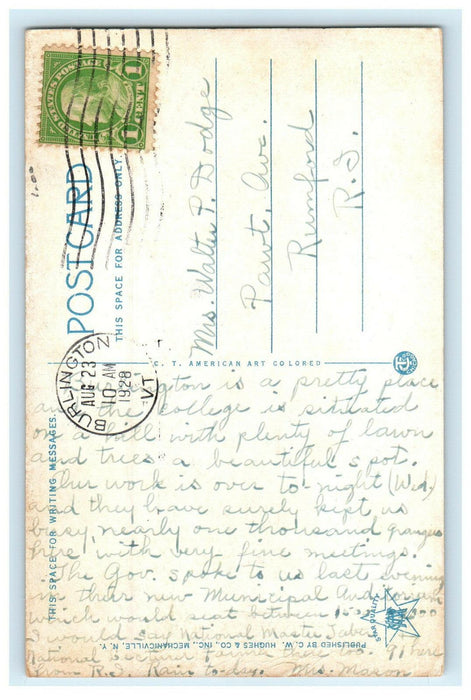 POSTCARD
THIS SPACE FOR ADDRESS ONLY.
UNITED STATES POSTAGE
1 CENT 1
1.00
Mrs. Walter P. Dodge
Pawt. Ave.
Rumford
R.I.
C. T. AMERICAN ART COLORED
BURLINGTON
AUG 23
10 AM
1928
VT
THIS SPACE FOR WRITING MESSAGES.
Burlington is a pretty place
and the college is situated
on a hill with plenty of lawn
and trees a beautiful spot.
Our work is over to night (Wed.)
and they have surely kept us
busy, nearly one thousand grangers
here, with very fine meetings.
The Gov. spoke to us last evening
in their new Municipal Auditorium
which would seat between
I would say National Master Taber
National Lecturer Farmer here too. 9 here
from R.I. Rain to-day. Mrs. Mason
STAR QUALITY
PUBLISHED BY C. W. HUGHES & CO., INC., MECHANICVILLE, N. Y.